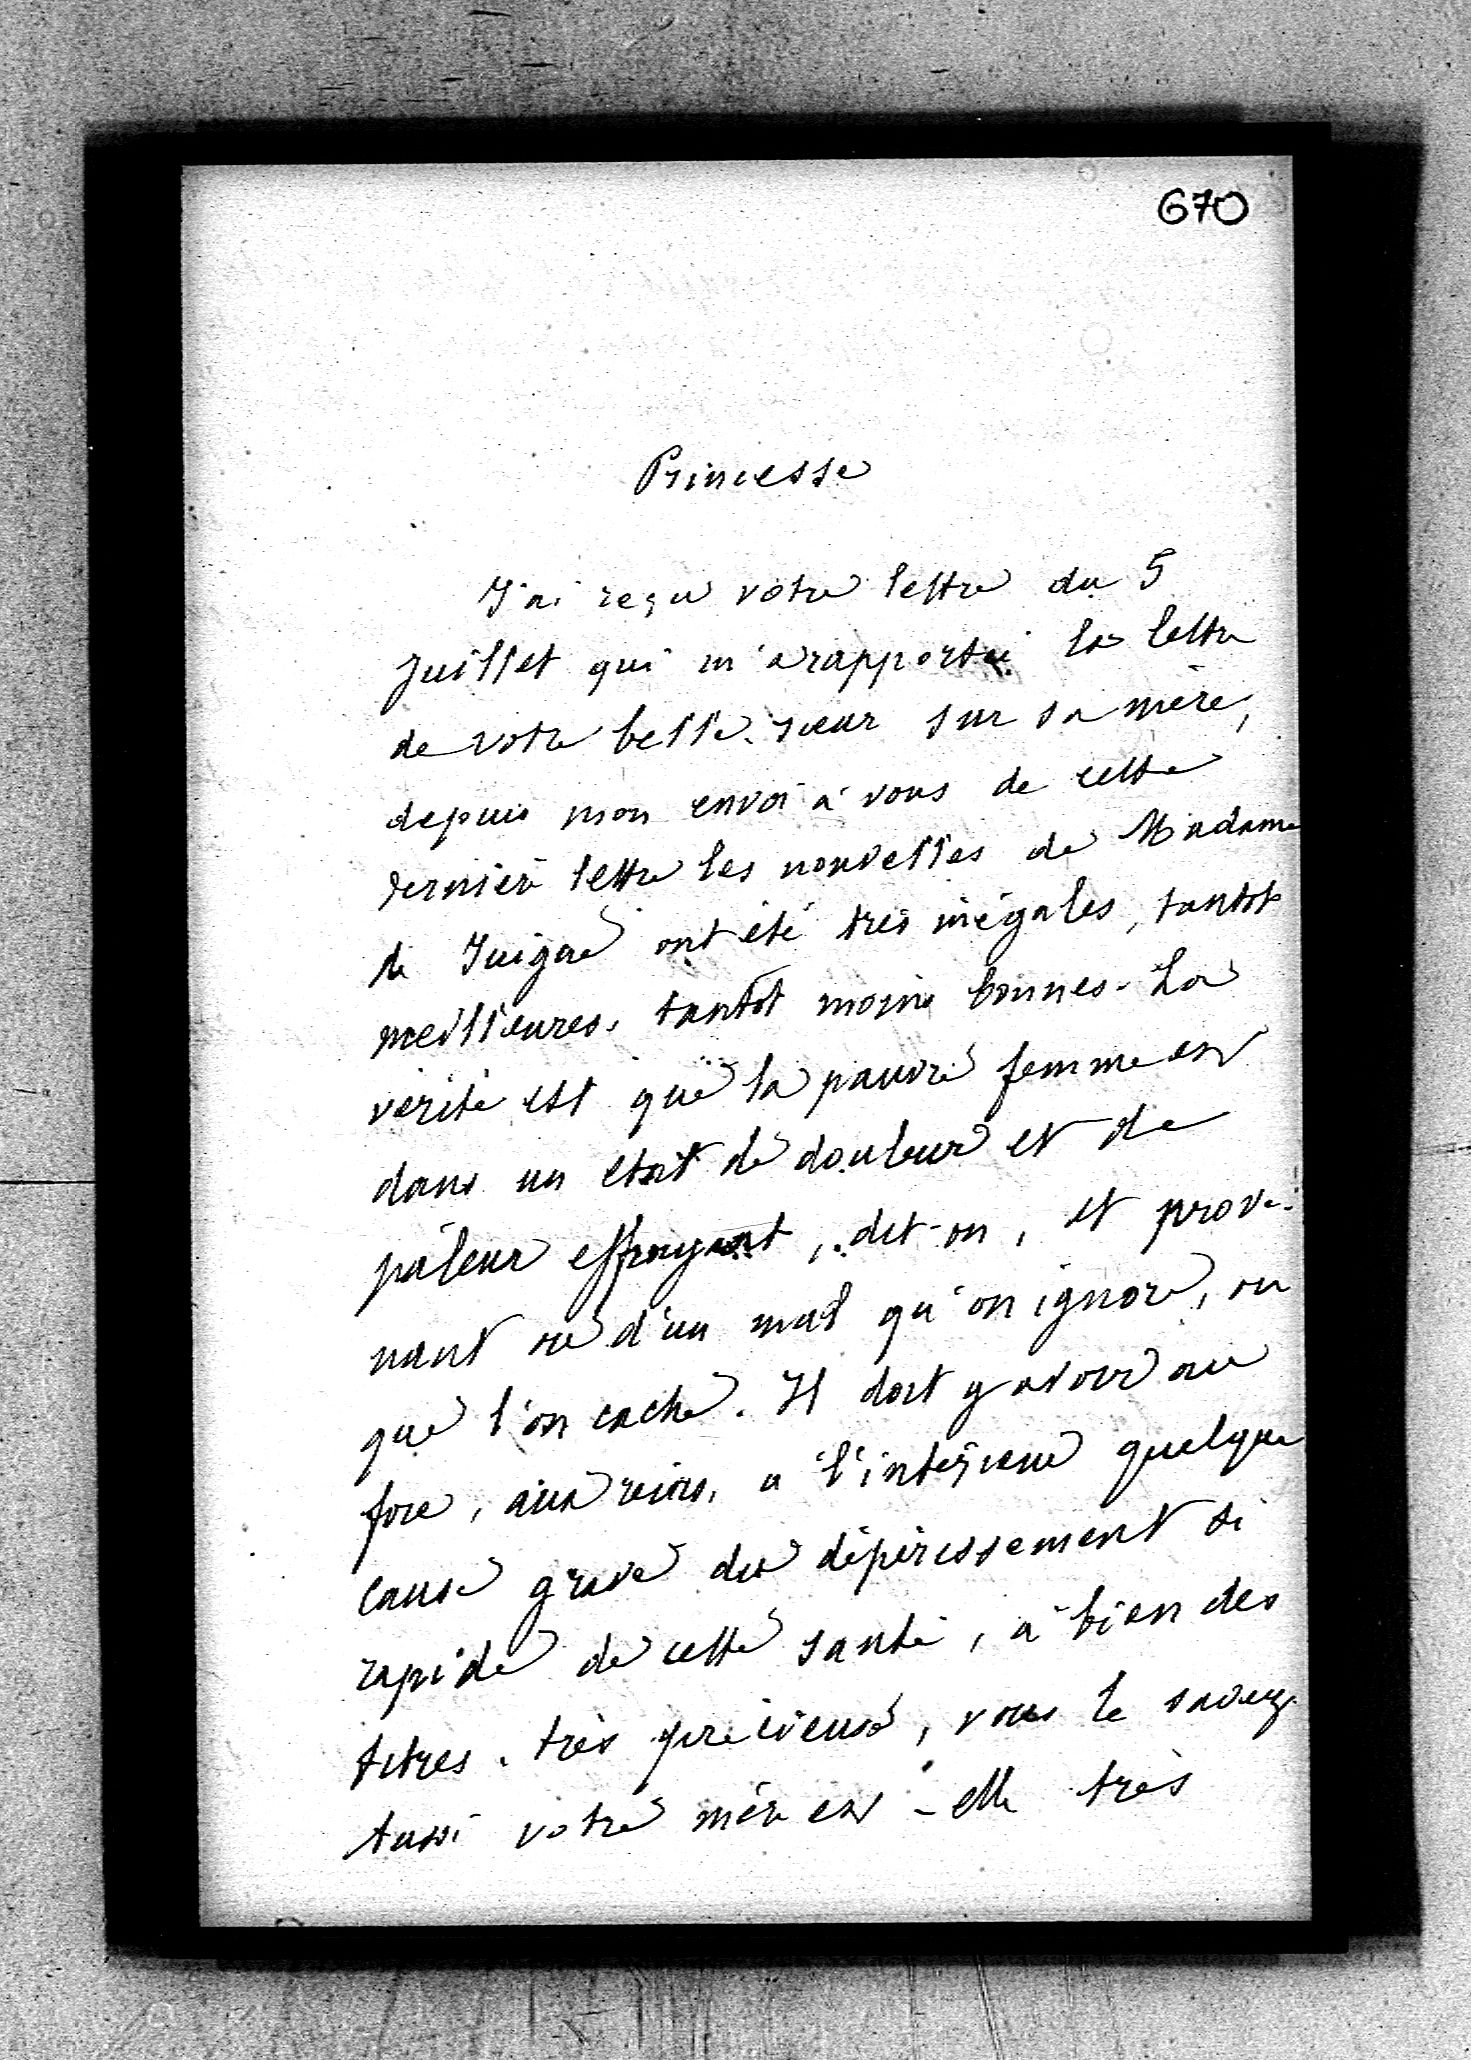 670
Princesse
J'ai reçu votre lettre du 5
juillet qui m'a rapporté la lettre
de votre belle-sœur sur sa mère,
depuis mon envoi à vous de cette
dernière lettre les nouvelles de Madame
de Juigné ont été très inégales, tantôt
meilleures, tantôt moins bonnes. La
vérité est que la pauvre femme est
dans un état de douleur et de
pâleur effrayant, dit-on, et prove-
nant ou d'un mal qu'on ignore, ou
que l'on cache. Il doit y avoir au
foie, aux reins, à l'intérieur quelque
cause grave du dépérissement si
rapide de cette santé, à bien des
titres, très précieuse, vous le savez.
Aussi votre mère est-elle très